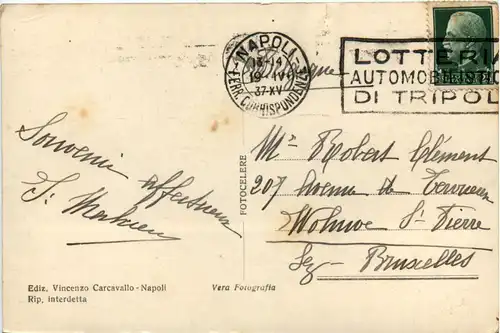 NAPOLI
13-14
19 IV
37-XV
FERR. CORRISPONDENZE
LOTTERIA
AUTOMOBILISTIC
DI TRIPOL
Souvenir
affectueux
Mr Robert Clément
207 Avenue de Tervueren
Woluwe St Pierre
Lez - Bruxelles
FOTOCELERE
Ediz. Vincenzo Carcavallo - Napoli
Rip. interdetta
Vera Fotografia